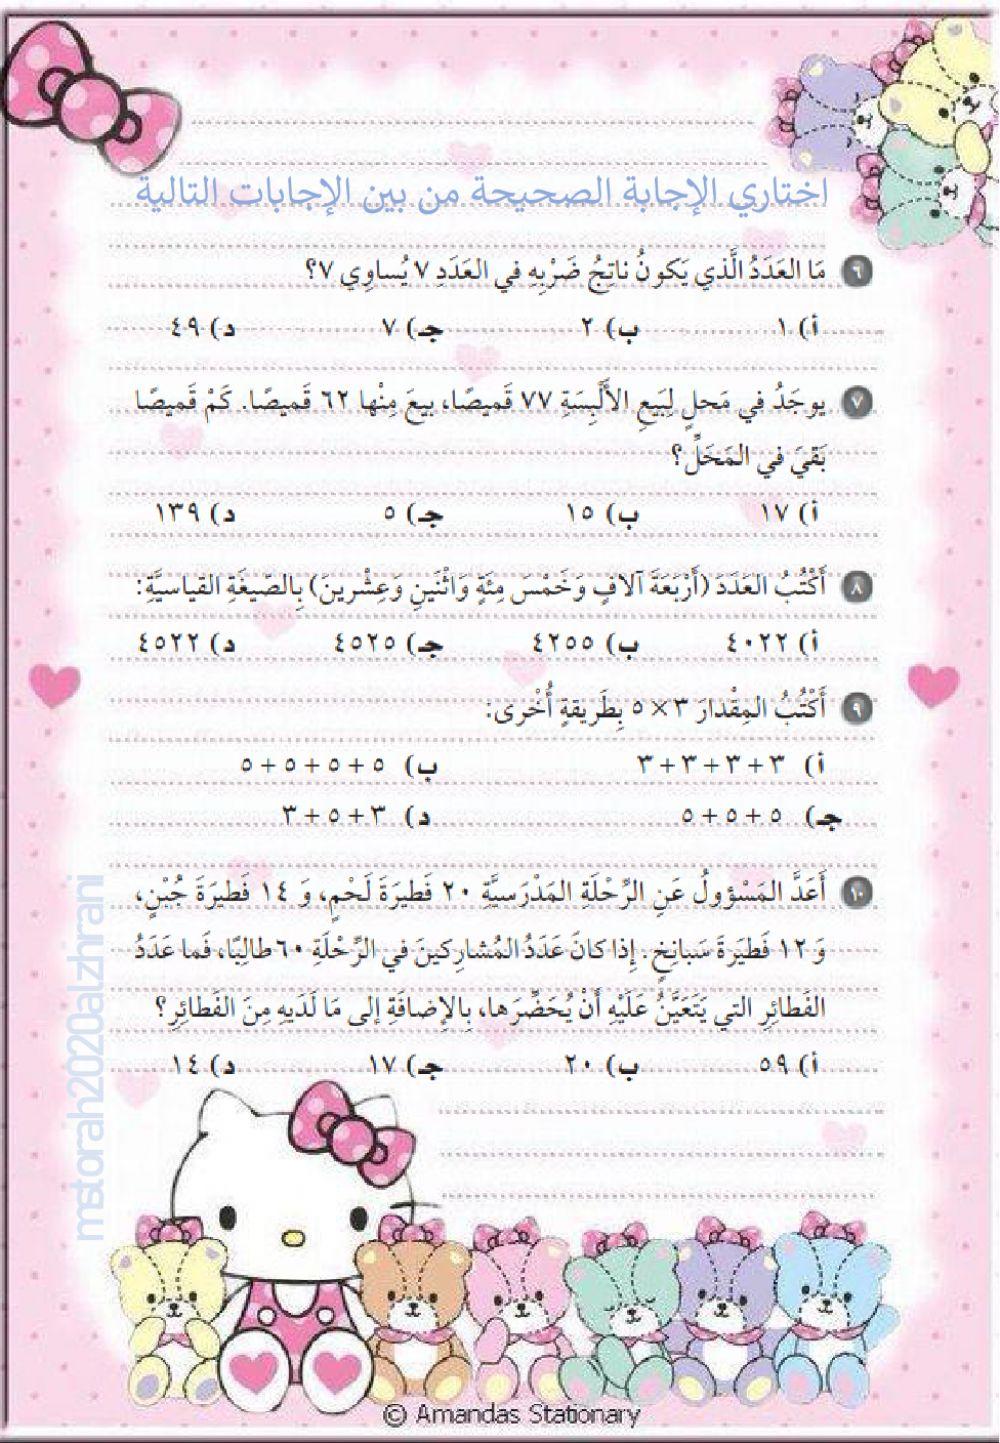 اختاري الإجابة الصحيحة من بين الإجابات التالية
٦ مَا العَدَدُ الَّذي يَكونُ ناتِجُ ضَرْبِهِ في العَدَدِ ٧ يُساوِي ٧؟
أ) ١ ب) ٢ جـ) ٧ د) ٤٩
٧ يوجَدُ في مَحلٍ لِبَيعِ الأَلْبِسَةِ ٧٧ قَميصًا، بيعَ مِنْها ٦٢ قَميصًا. كَمْ قَميصًا
بَقيَ في المَحَلِّ؟
أ) ١٧ ب) ١٥ جـ) ٥ د) ١٣٩
٨ أَكْتُبُ العَدَدَ (أَرْبَعَةَ آلافٍ وَخَمْسَ مِئَةٍ وَاثْنَينِ وَعِشْرينَ) بِالصّيغَةِ القياسيَّةِ:
أ) ٤٠٢٢ ب) ٤٢٥٥ جـ) ٤٥٢٥ د) ٤٥٢٢
٩ أَكْتُبُ المِقْدارَ ٣ × ٥ بِطَريقةٍ أُخْرى:
أ) ٣ + ٣ + ٣ + ٣ ب) ٥ + ٥ + ٥ + ٥
جـ) ٥ + ٥ + ٥ د) ٣ + ٥ + ٣
١٠ أَعَدَّ المَسْؤولُ عَنِ الرِّحْلَةِ المَدْرَسيَّةِ ٢٠ فَطيرَةَ لَحْمٍ، وَ ١٤ فَطيرَةَ جُبْنٍ،
وَ ١٢ فَطيَرةَ سَبانِخٍ. إِذا كانَ عَدَدُ المُشارِكينَ في الرِّحْلَةِ ٦٠ طالِبًا، فَما عَدَدُ
الفَطائِرِ التي يَتَعَيَّنُ عَلَيْهِ أَنْ يُحَضِّرَها، بِالإضافَةِ إلى مَا لَدَيهِ مِنَ الفَطائِرِ؟
أ) ٥٩ ب) ٢٠ جـ) ١٧ د) ١٤
mstorah2020alzhrani
© Amandas Stationary